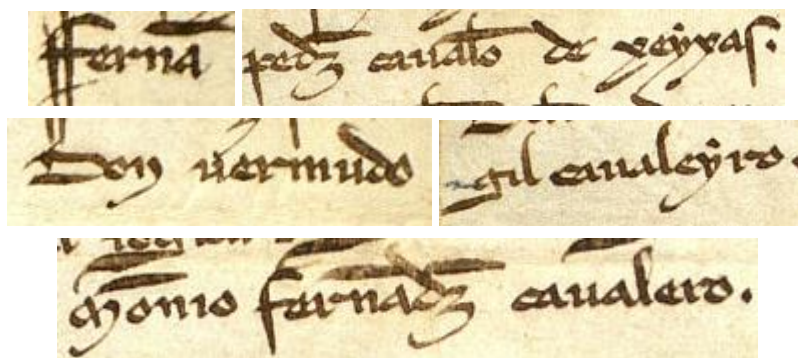 fferna pedȝ caualo de xeyxas.
Don uermudo
gil caualeyro.
Monio fernadȝ caualero.